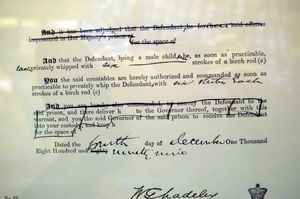 And it has been adjudged that the Defendant, be for h said offence
imprisoned in Her Majesty's prison
for the space of
And that the Defendant, being a male child, be, as soon as practicable,
privately whipped with six strokes of a birch rod (e)
You the said constables are hereby authorized and commanded as soon as
practicable to privately whip the Defendant, with six strokes each
strokes of a birch rod (e)
And you are hereby to convey the Defendant to the
said prison, and there deliver h to the Governor thereof, together with this
warrant, and you the said Governor of the said prison to receive the Defendant
into your custody
for the space of
Dated the fourth day of December One Thousand
Eight Hundred and ninety nine